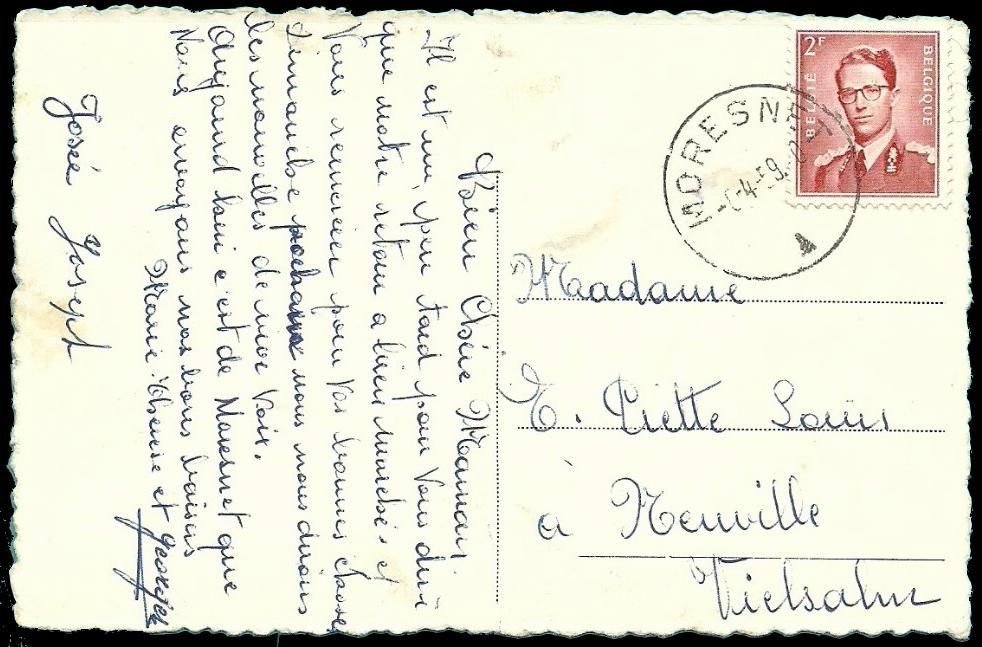 Bien Chère Maman.
Il est un peu tard pour vous dire
que notre retour a bien marché. et
Vous remercier pour vos bonnes choses
Dimanche prochain nous nous dirons
les nouvelles de vive voix.
Aujourd'hui c'est de Moresnet que
Nous envoyons nos bons baisers
Marie Thérèse et Georges
Josée Joseph
2F
BELGIË BELGIQUE
MORESNET
-4-59
Madame
Piette Louis
à Neuville
Vielsalm